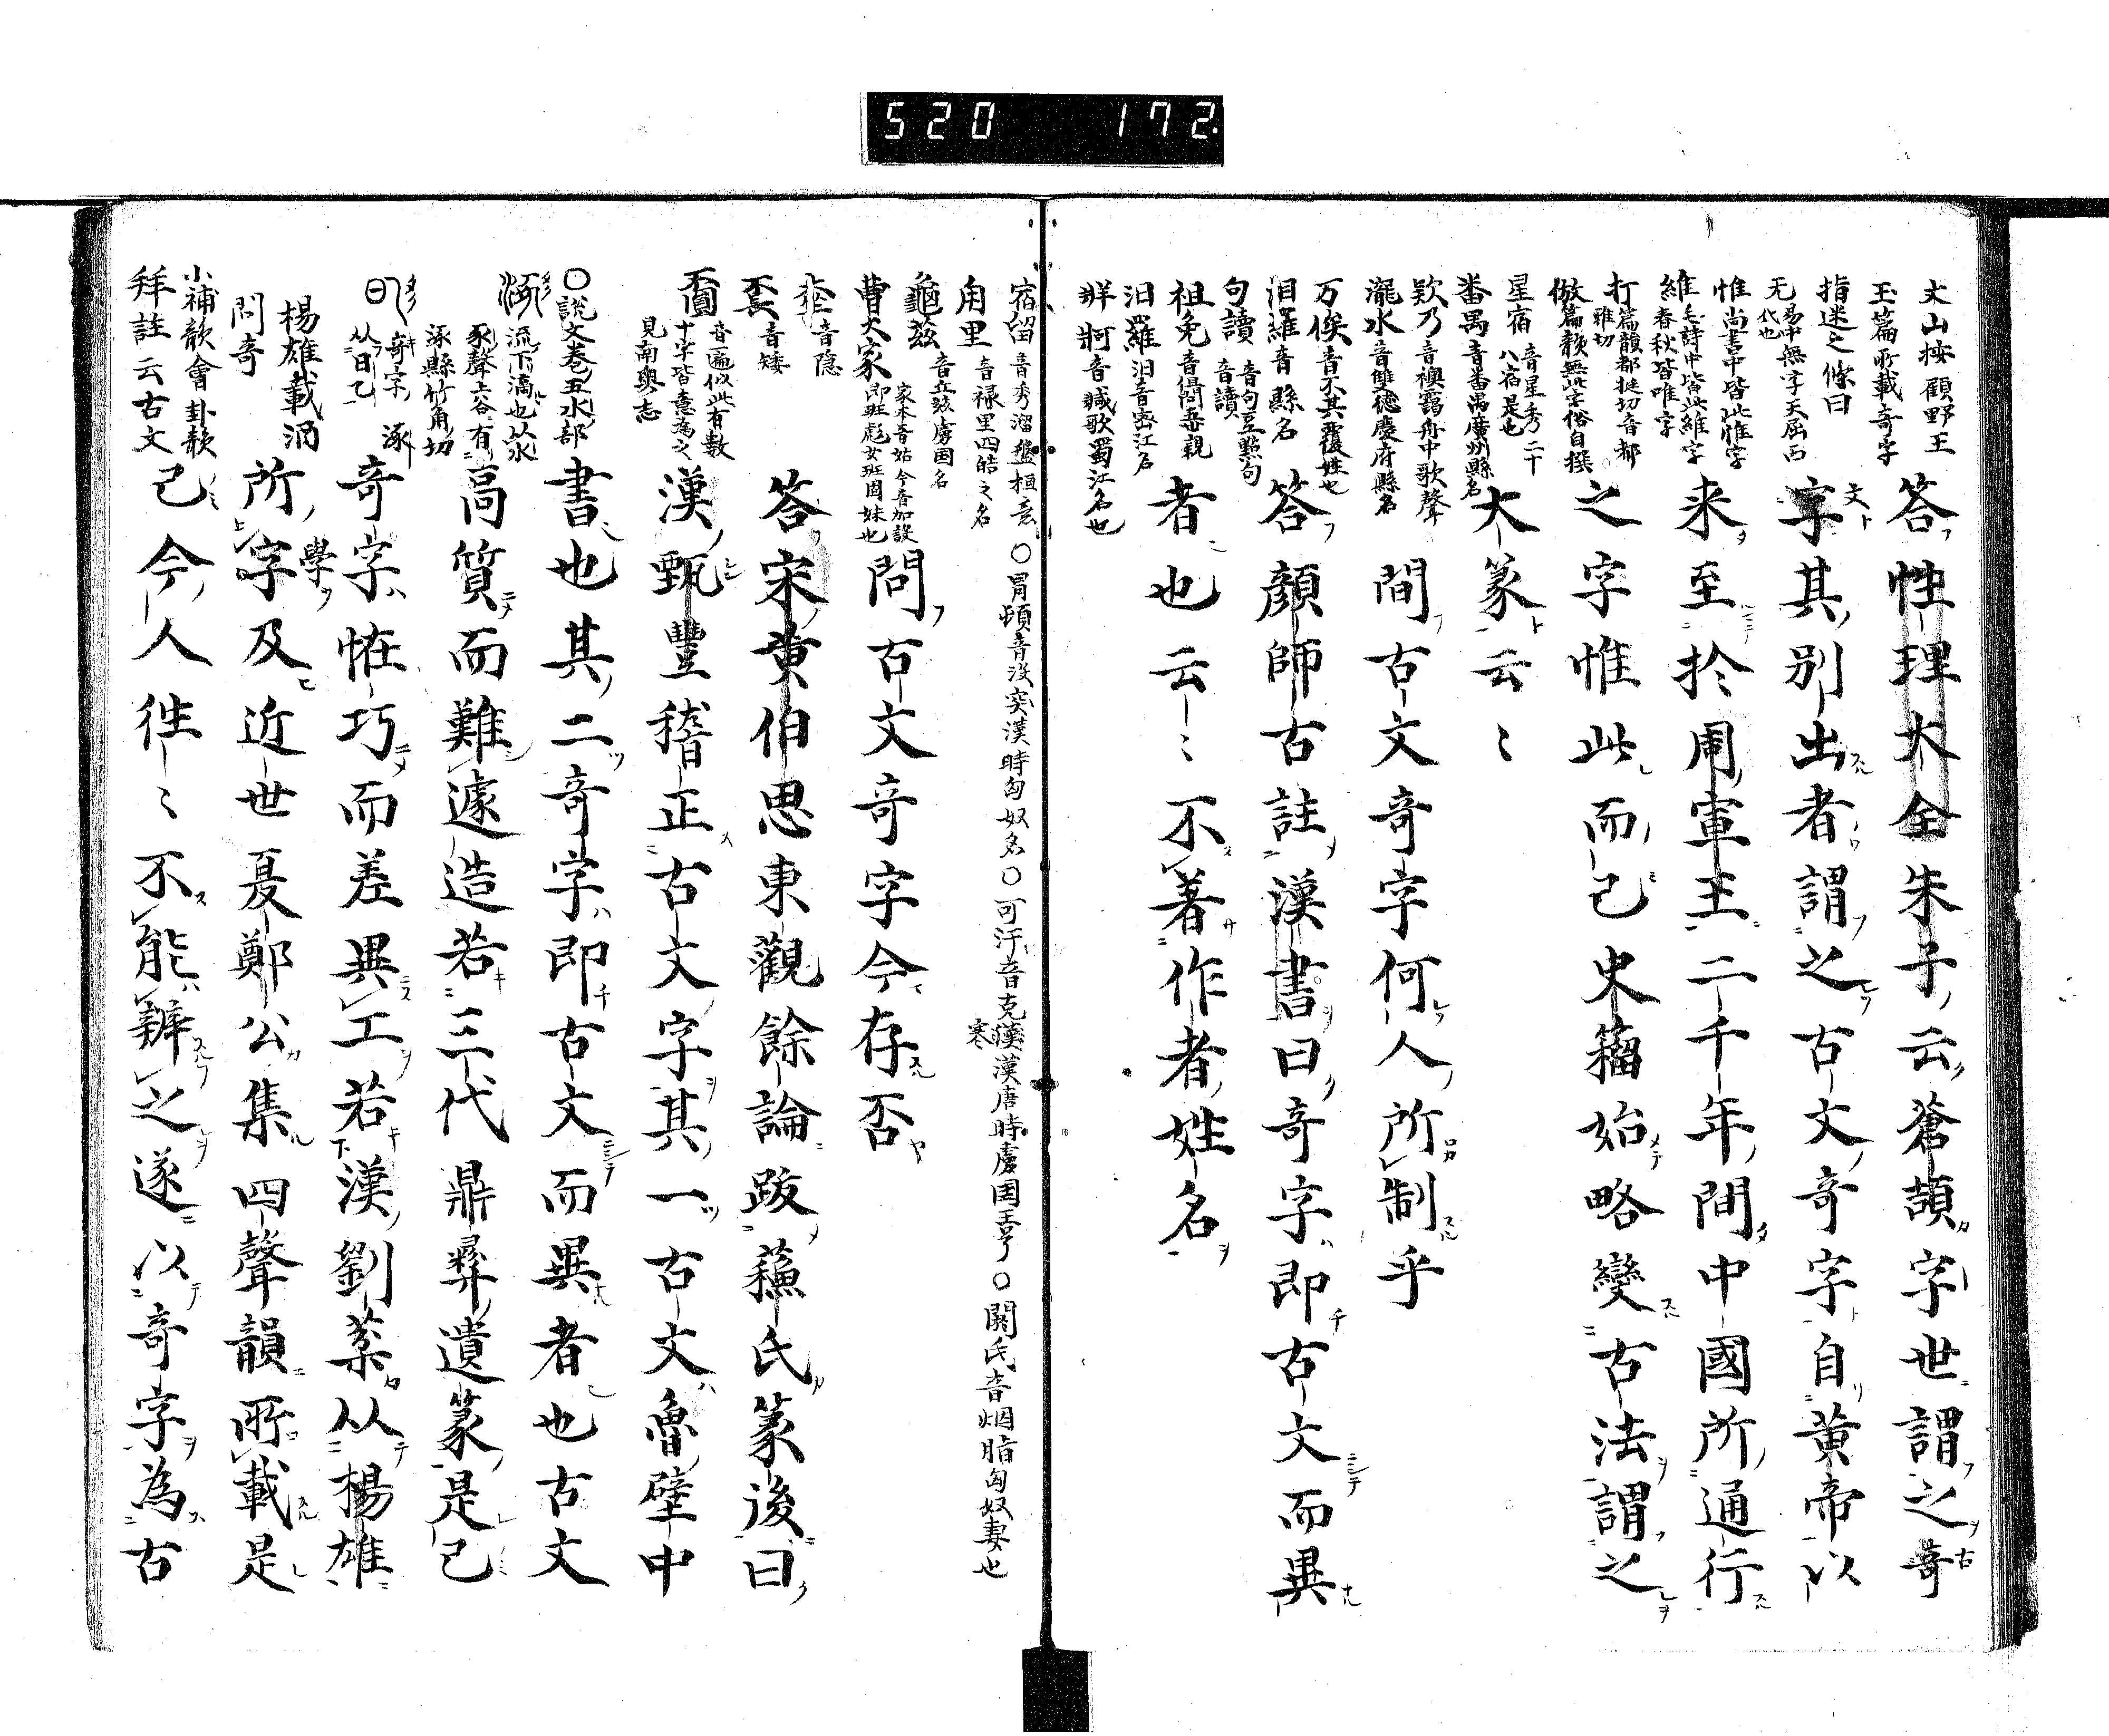 520 172
太山按顧野王
玉篇所載奇字
指迷之條曰
无 易中無字天屈西
代也
惟 尚書中皆此惟字
維 毛詩中皆此維字
春秋皆唯字
打 篇韻都挺切音都
雅切
倣 篇韻無此字俗自撰
星宿 音星秀二十
八宿是也
番禺 音番禺廣州縣名
欵乃 音襖靄舟中歌聲
瀧水 音雙德慶府縣名
万俟 音不其覆姓也
泪羅 音 縣名
句讀 音句豆㸃句
音讀
祖免 音
汨羅 汨音密江名
牂牁 音臧歌蜀江名也
答性理大全朱子云蒼頡字世謂之奇
字其別出者謂之古文奇字自黄帝以
来至扵周宣王二千年間中國所通行
之字惟此而已史籀始略變古法謂之
大篆云〻
問古文奇字何人所制乎
答顔師古註漢書曰奇字即古文而異
者也云〻不著作者姓名
宿留 音秀溜盤桓意
角里 音祿里四皓之名
龜茲 音丘玆虜国名
曹大家 家本音姑今音加設
即班彪女班固妹也
𠀾 音隠
音矮
音 似此有數
十字皆意為之
見南粤志
〇説文巻五水部
流下滴也从水
豖聲上谷有
涿縣竹角切
奇字涿
从日乙
楊雄載酒
問奇
小補韻會卦韻
拜註云古文
〇冒頓音没突漢時匈奴名〇可汗音克寒漢唐時虜国王号〇閼氏音烟脂匈奴妻也
問古文奇字今存否
答宋黄伯思東觀餘論跋蘓氏篆後曰
漢甄豐稽正古文字其一古文魯壁中
書也其二奇字即古文而異者也古文
高質而難遽造若三代鼎彛遺篆是已
奇字恠巧而差異工若漢劉棻从楊雄
所學字及近世夏鄭公集四聲韻所載是
已今人徃〻不能辨之遂以奇字為古